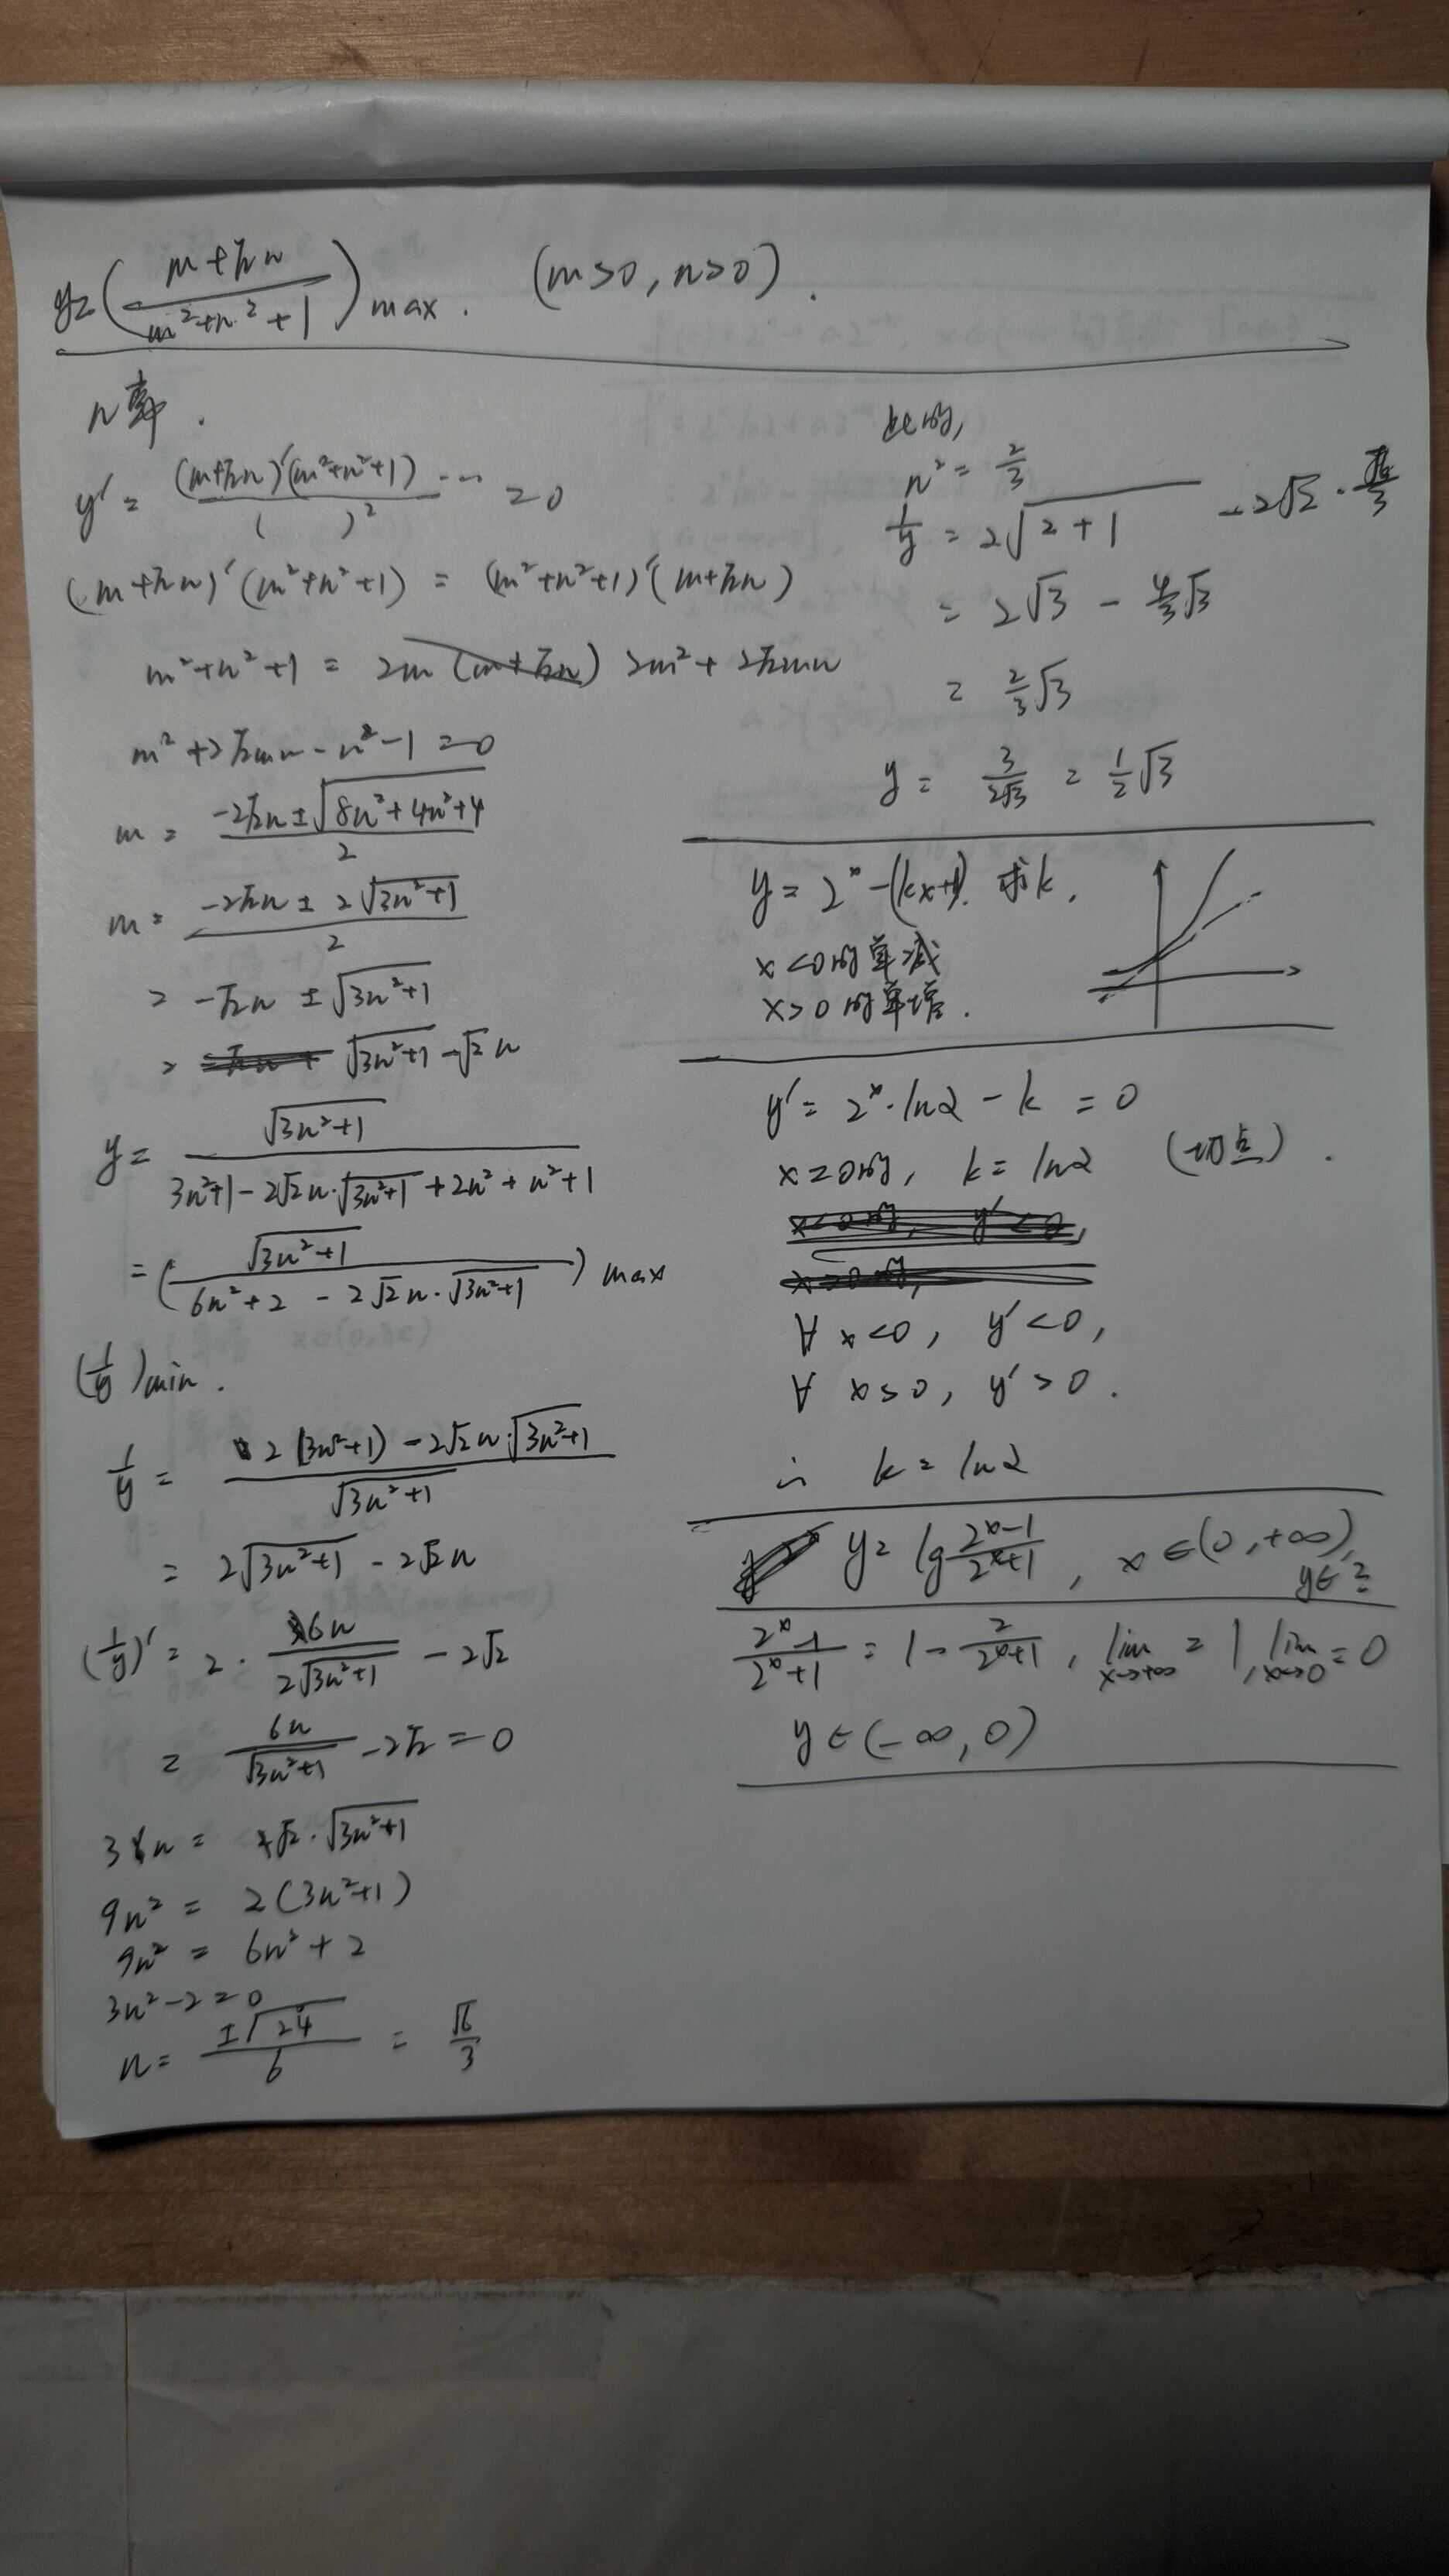 y=(m+√2n / m²+n²+1)max. (m>0, n>0).
y' = (m+√2n)'(m²+n²+1)… / ( )² = 0
(m+√2n)'(m²+n²+1) = (m²+n²+1)'(m+√2n)
m²+n²+1 = 2m 2m²+2√2mn
m²+2√2mn-n²-1=0
m = -2√2n±√(8n²+4n²+4) / 2
m = -2√2n ± 2√(3n²+1) / 2
= -√2n ± √(3n²+1)
= √(3n²+1) - √2n
y = √(3n²+1) / 3n²+1-2√2n·√(3n²+1)+2n²+n²+1
= (√(3n²+1) / 6n²+2 - 2√2n·√(3n²+1)) max
(1/y)min.
1/y = 2(3n²+1) - 2√2n·√(3n²+1) / √(3n²+1)
= 2√(3n²+1) - 2√2n
(1/y)' = 2· 6n / 2√(3n²+1) - 2√2
= 6n / √(3n²+1) - 2√2 = 0
3n = √2·√(3n²+1)
9n² = 2(3n²+1)
9n² = 6n²+2
3n²-2=0
n = ±√24 / 6 = √6/3
此时,
n² = 2/3
1/y = 2√(2+1) - 2√2·√6/3
= 2√3 - 4/3√3
= 2/3√3
y = 3/2√3 = 1/2√3
y = 2ˣ-(kx+1). 求k,
x<0时单减
x>0时单增.
y' = 2ˣ·ln2 - k = 0
x=0时, k=ln2 (切点).
∀ x<0, y'<0,
∀ x>0, y'>0.
∴ k = ln2
y = lg 2ˣ-1 / 2ˣ+1, x∈(0,+∞),
y∈?
2ˣ-1 / 2ˣ+1 = 1- 2 / 2ˣ+1, lim x→+∞ = 1, lim x→0 = 0
y∈(-∞,0)